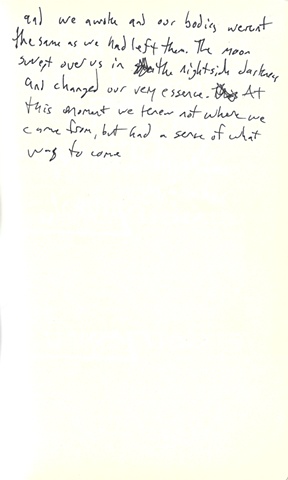 and we awoke and our bodies werent
the same as we had left them. The moon
swept over us in the nightside darkness
and changed our very essence. At
this moment we knew not where we
came from, but had a sense of what
was to come